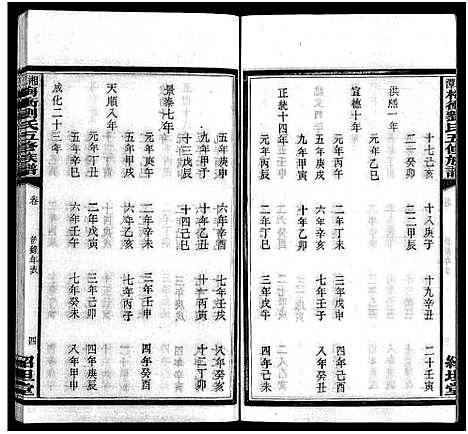 十七己亥 十八庚子 十九辛丑 二十壬寅
二一癸卯 二二甲辰
洪熙一年
元年乙巳
宣德十年
元年丙午 二年丁未 三年戊申 四年己酉
五年庚戌 六年辛亥 七年壬子 八年癸丑
九年甲寅 十年乙卯
正統十四年
元年丙辰 二年丁巳 三年戊午 四年己未
五年庚申 六年辛酉 七年壬戌 八年癸亥
九年甲子 十年乙丑 十一丙寅 十二丁卯
十三戊辰 十四己巳
景泰七年
元年庚午 二年辛未 三年壬申 四年癸酉
五年甲戌 六年乙亥 七年丙子
天順八年
元年丁丑 二年戊寅 三年己卯 四年庚辰
五年辛巳 六年壬午 七年癸未 八年甲申
成化二十三年
湘衡劉氏五修族譜
卷 年表 四
紹堂